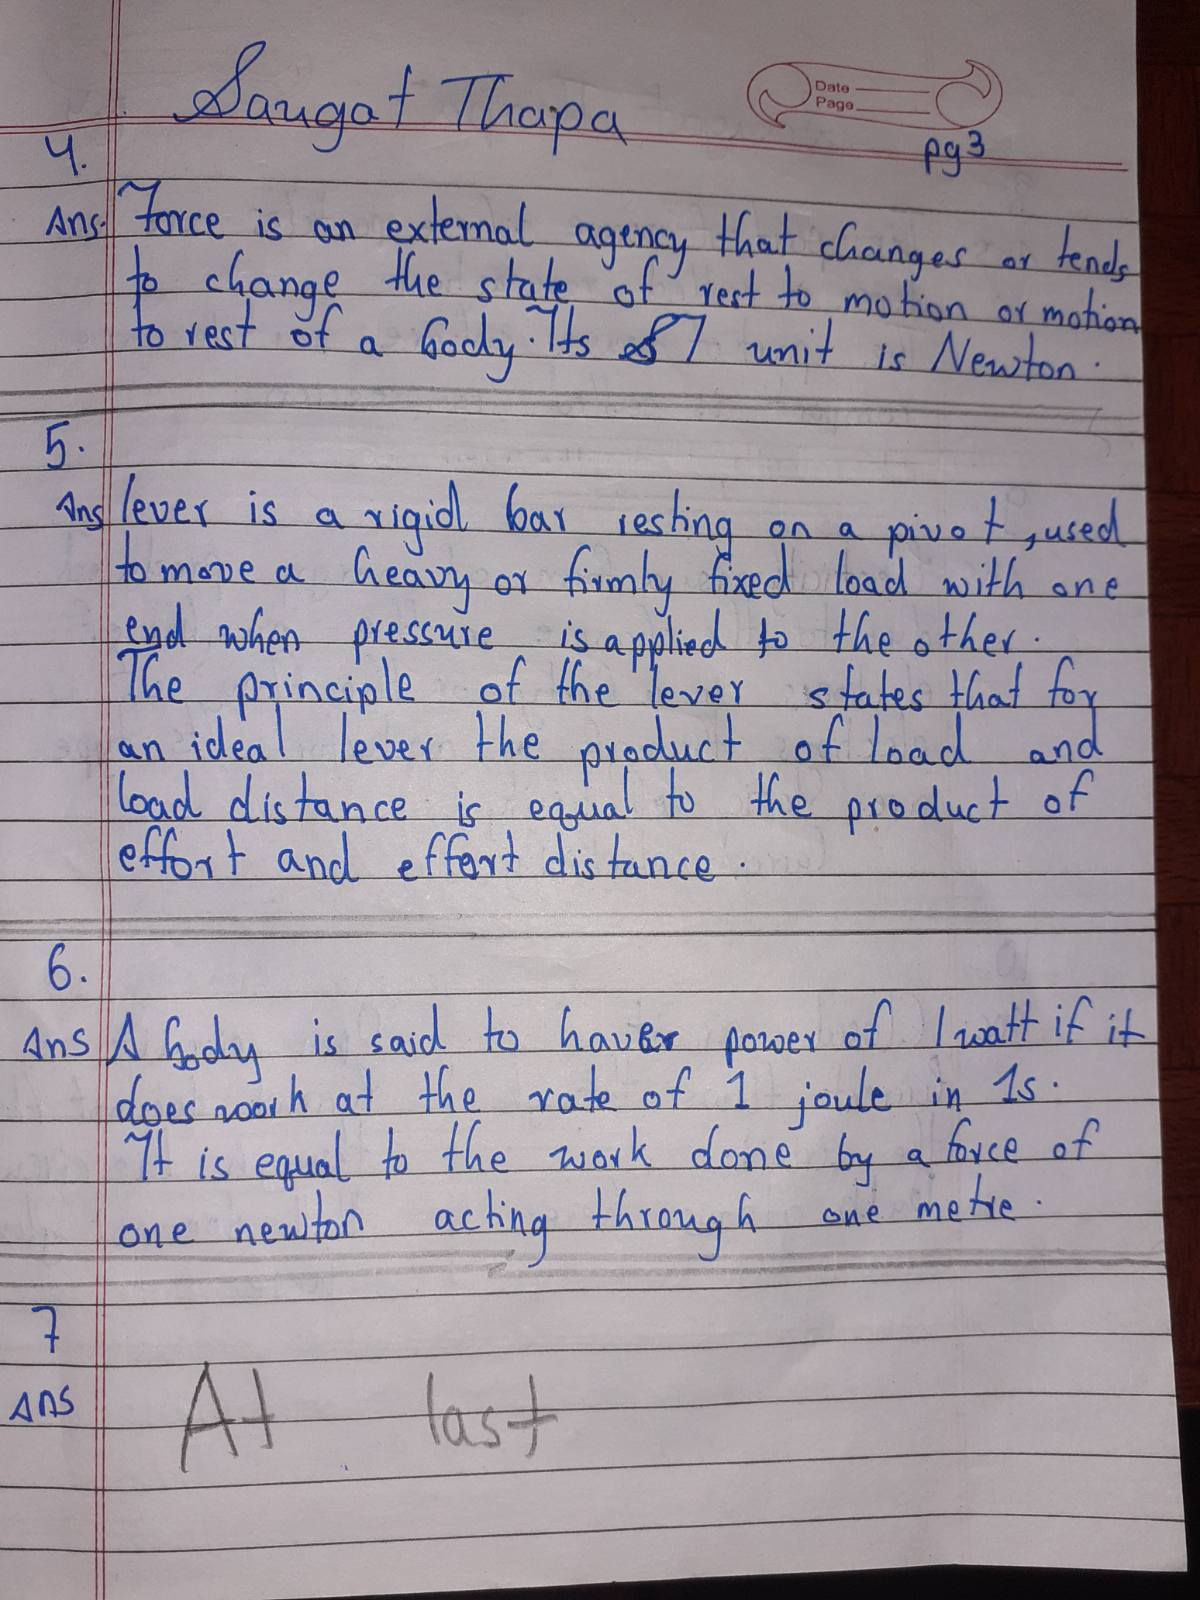 Saugat Thapa
Date
Page
pg 3
4.
Ans. Force is an external agency that changes or tends
to change the state of rest to motion or motion
to rest of a body. Its SI unit is Newton.
5.
Ans lever is a rigid bar resting on a pivot, used
to move a heavy or firmly fixed load with one
end when pressure is applied to the other.
The principle of the lever states that for
an ideal lever the product of load and
load distance is equal to the product of
effort and effort distance.
6.
Ans A body is said to have power of 1 watt if it
does work at the rate of 1 joule in 1s.
It is equal to the work done by a force of
one newton acting through one metre.
7
Ans At last